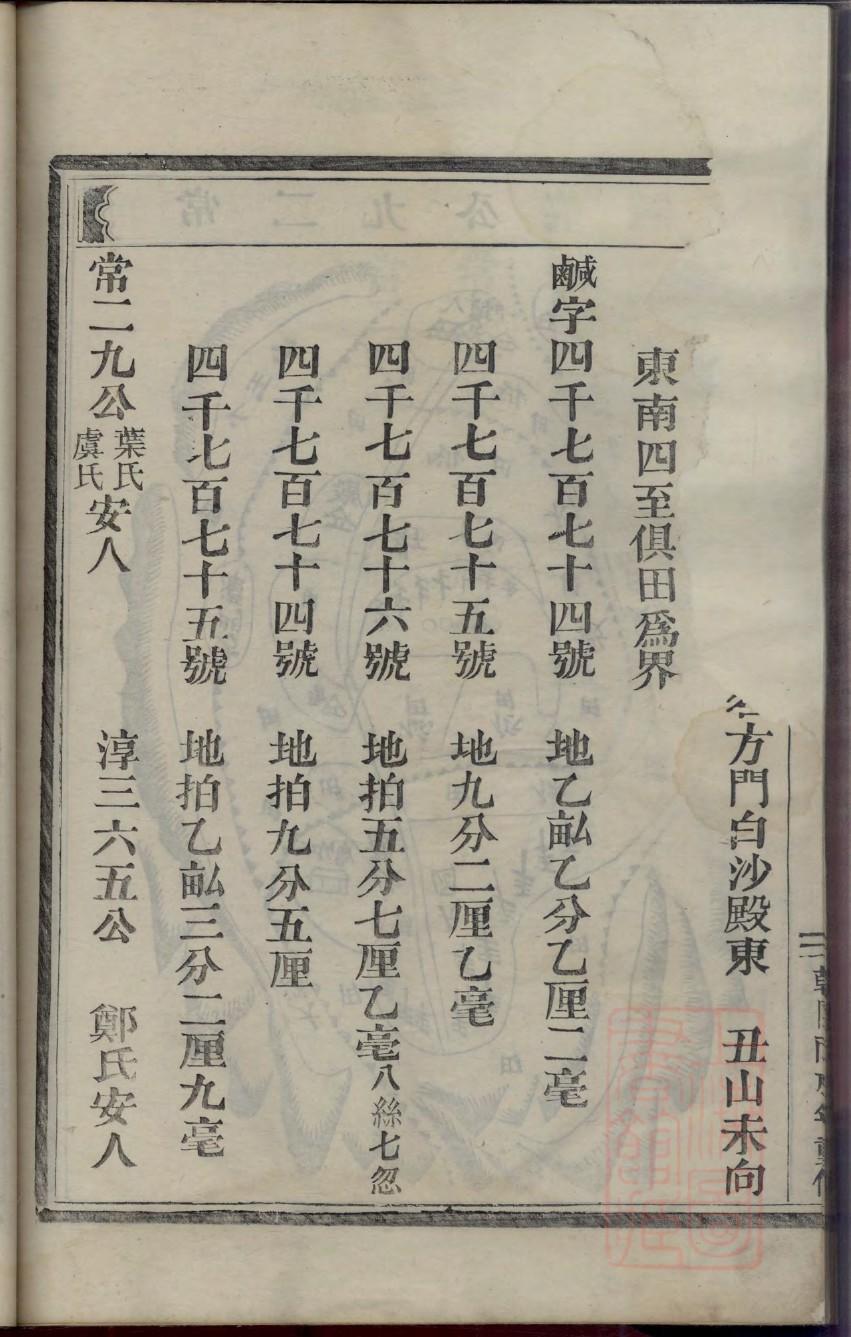 方門白沙殿東 丑山未向
東南四至俱田爲界
鹹字四千七百七十四號 地乙畝乙分乙厘二毫
四千七百七十五號 地九分二厘乙毫
四千七百七十六號 地拍五分七厘乙毫八絲七忽
四千七百七十四號 地拍九分五厘
四千七百七十五號 地拍乙畝三分二厘九毫
常二九公葉氏虞氏安人 淳三六五公 鄭氏安人